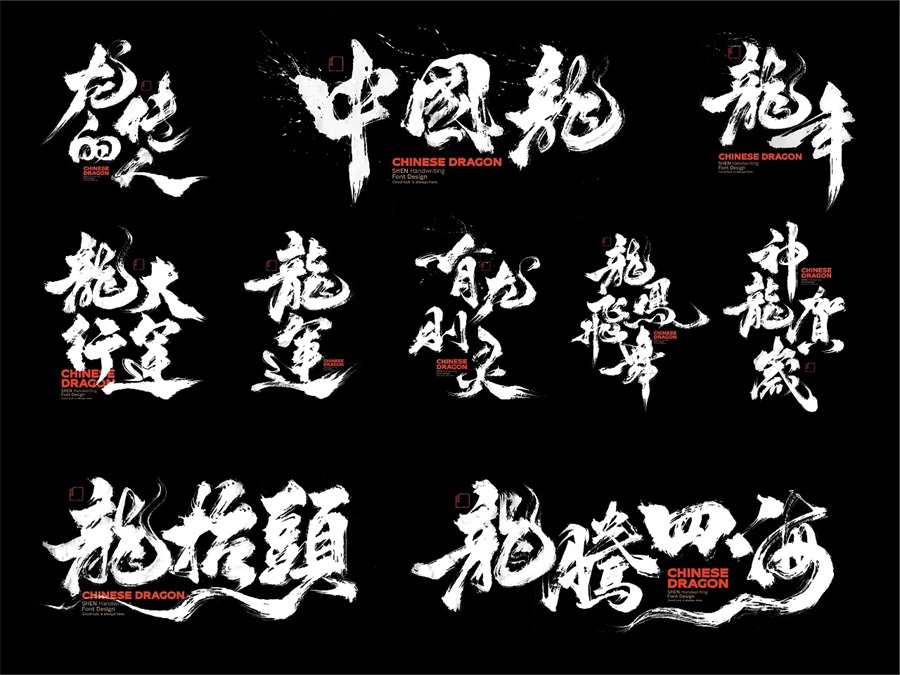 龙的传人
CHINESE
DRAGON
中國龍
CHINESE DRAGON
SHEN Handwriting
Font Design
Good luck is always here.
龍年
CHINESE DRAGON
SHEN Handwriting
Font Design
Good luck is always here.
龍行大運
CHINESE
DRAGON
SHEN Handwriting
Font Design
Good luck is always here.
龍運
CHINESE
DRAGON
有龙则灵
CHINESE
DRAGON
龍飛鳳舞
CHINESE
DRAGON
神龍賀歲
CHINESE
DRAGON
龍抬頭
CHINESE DRAGON
SHEN Handwriting
Font Design
Good luck is always here.
龍騰四海
CHINESE
DRAGON
SHEN Handwriting
Font Design
Good luck is always here.